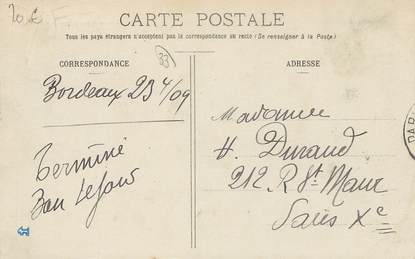 20 €
CARTE POSTALE
Tous les pays étrangers n'acceptent pas la correspondance au recto (Se renseigner à la Poste)
CORRESPONDANCE
33
ADRESSE
Bordeaux 23 4/09
Terminé
Bon Séjour
Madame
H. Durand
212 R St Maur
Paris Xe
PAR